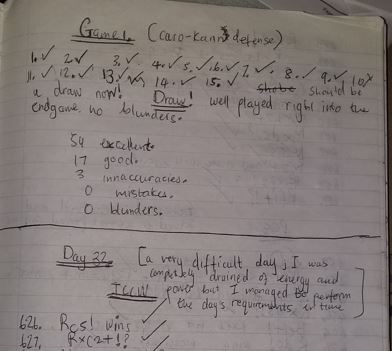 Game 1. (caro-kann defense)
1. ✓ 2. ✓ 3. ✓ 4. ✓ 5. ✓ 6. ✓ 7. ✓ 8. ✓ 9. ✓ 10x
11. ✓ 12. ✓ 13. ✓ 14. ✓ 15. ✓ should be
a draw now! Draw! well played right into the
endgame. no blunders.
54 excellent.
17 good.
3 innaccuracies.
0 mistakes.
0 blunders.
Day 32. [a very difficult day; I was
completely drained of energy and
power but I managed to perform
the day's requirements in time]
626. Rc5! wins ✓
627. Rxc2+!? ✓